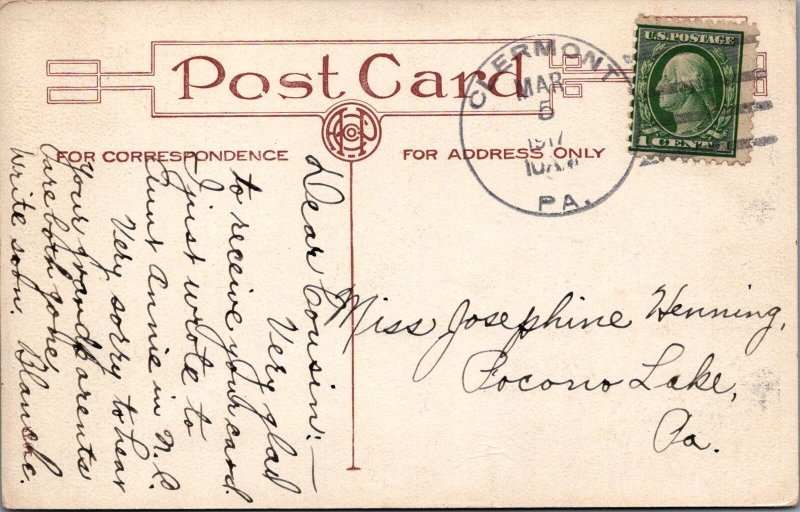 Post Card
FOR CORRESPONDENCE
FOR ADDRESS ONLY
CLERMONT
MAR
5
1917
10AM
PA.
U.S. POSTAGE
1 CENT 1
Dear Cousin:—
Very glad
to receive your card.
I just wrote to
Aunt Annie in N.C.
Very sorry to hear
your grandparents
are both gone.
Write soon. Blanche.
Miss Josephine Henning,
Pocono Lake,
Pa.